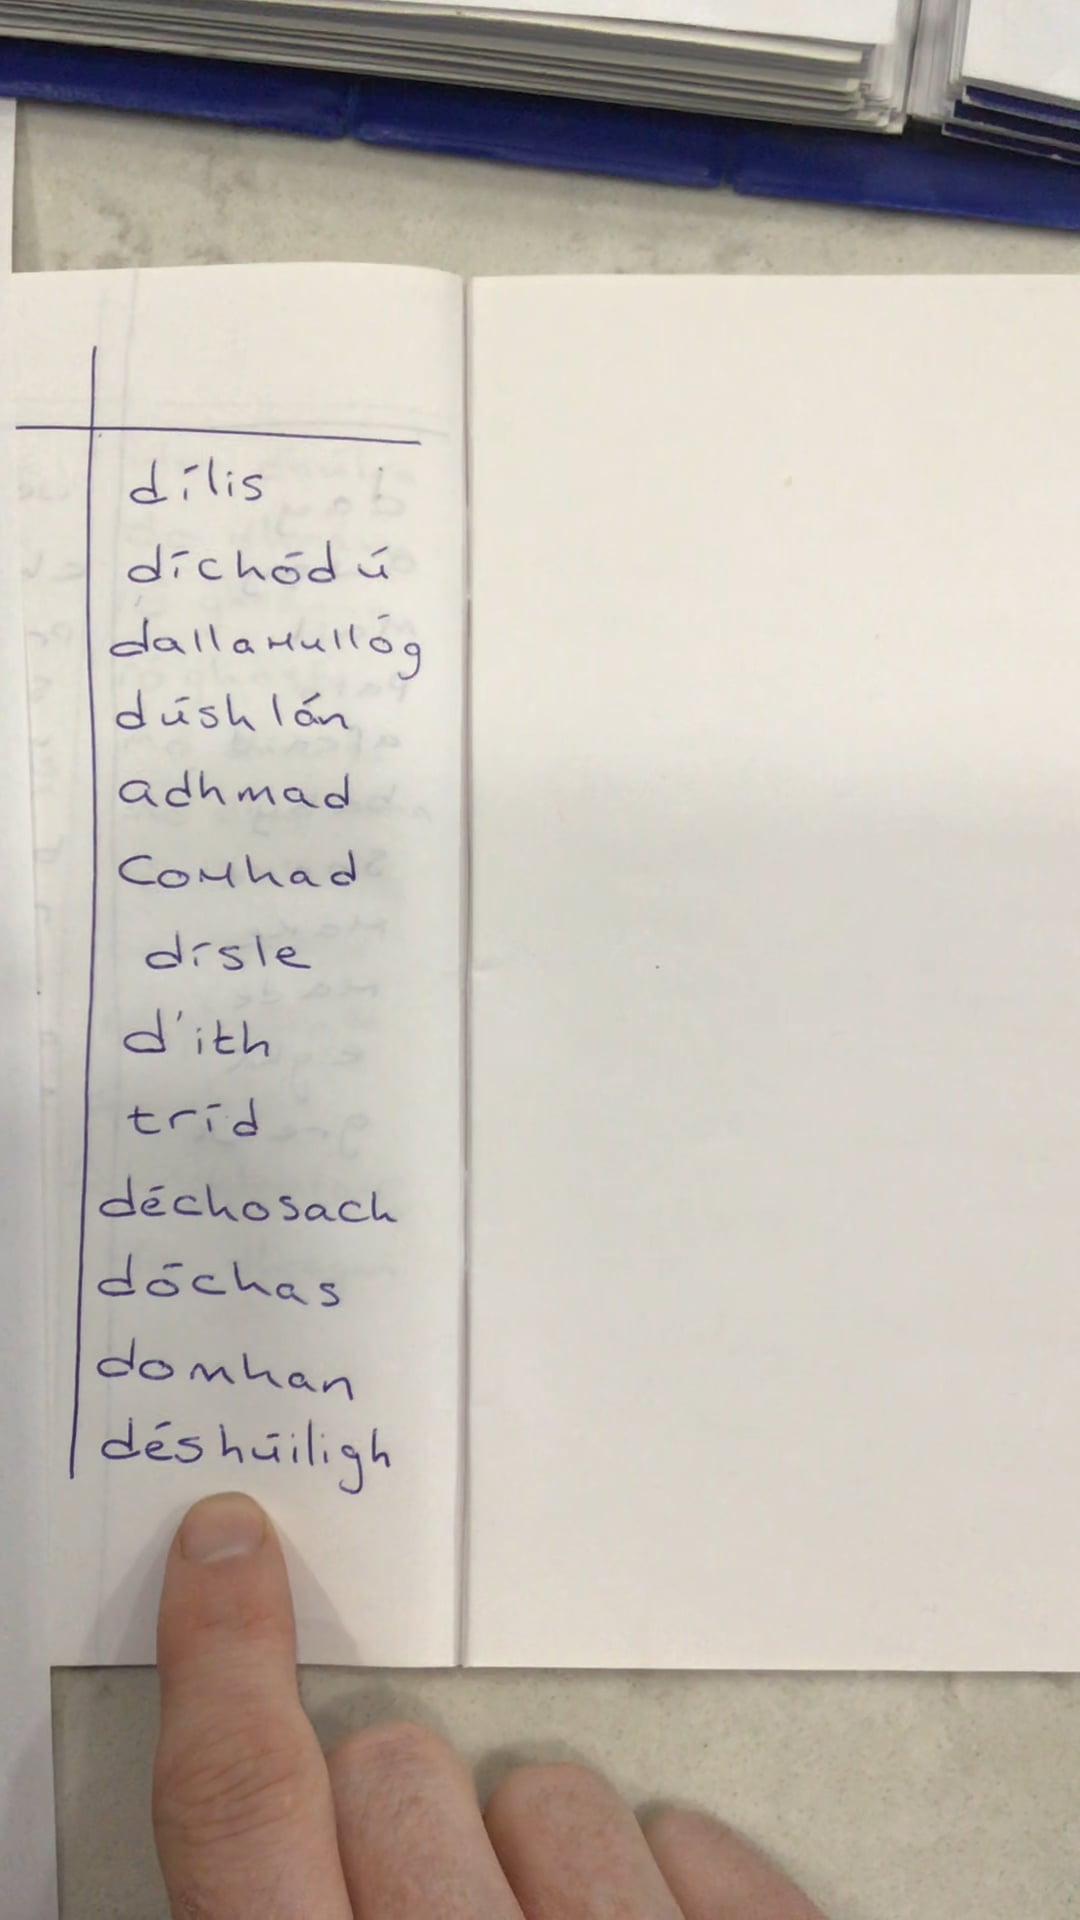 dílis
díchódú
dallamullóg
dúshlán
adhmad
Comhad
dísle
d'ith
tríd
déchosach
dóchas
domhan
déshúiligh